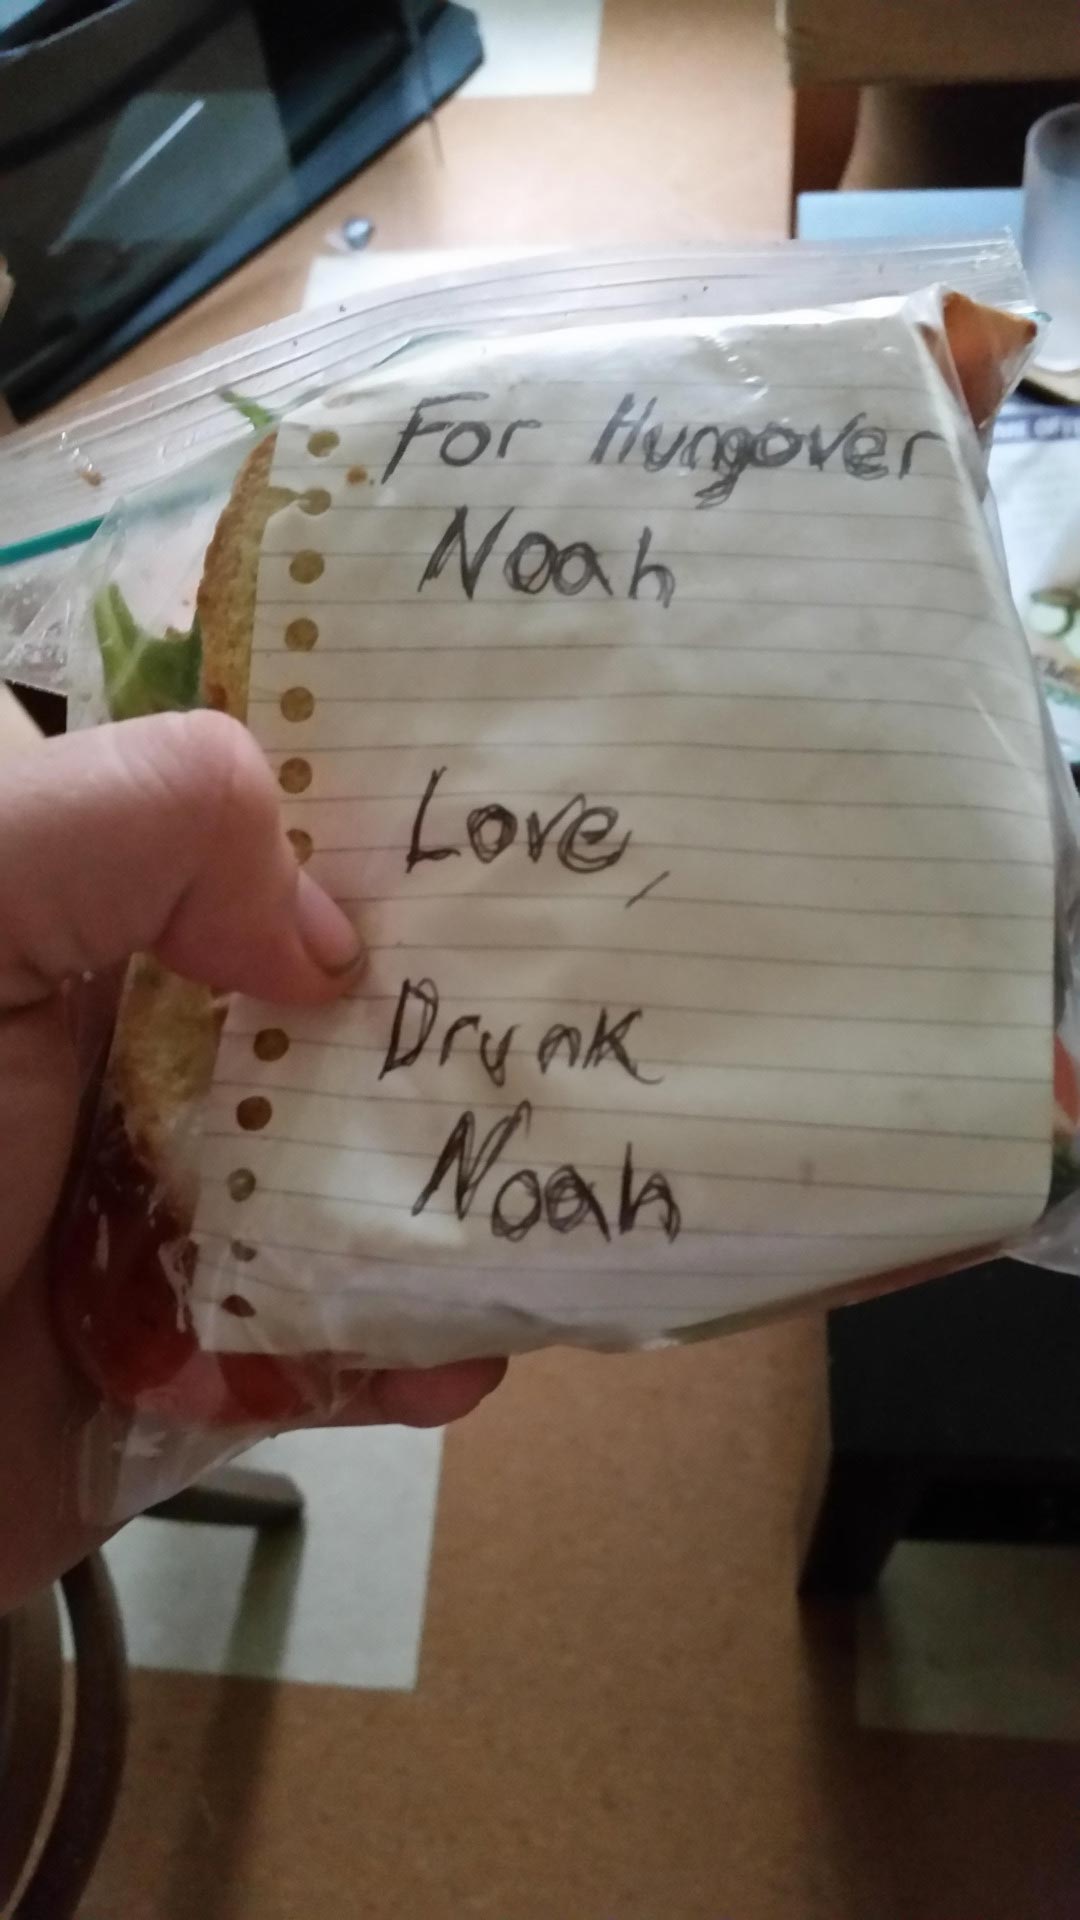 For Hungover
Noah
Love,
Drunk
Noah